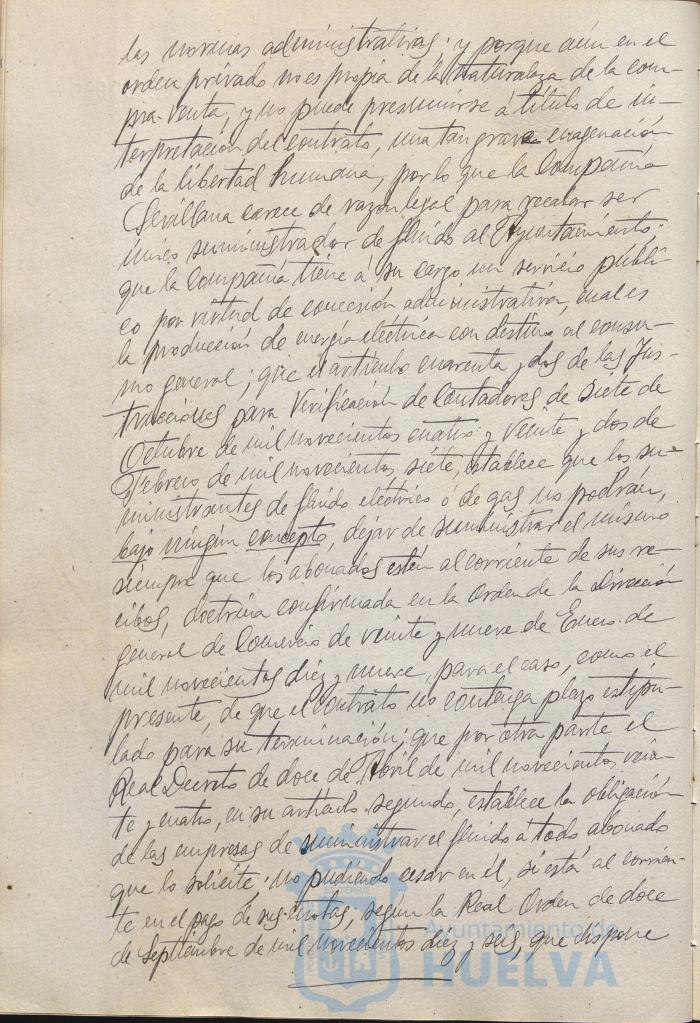 las normas administrativas; y porque aún en el
orden privado no es propia de la naturaleza de la com-
pra-venta, y no puede presumirse á título de in-
terpretación del contrato, una tan grave enagenación
de la libertad humana, por lo que la Compañía
Sevillana carece de razón legal para recabar ser
único suministrador de fluido al Ayuntamiento;
que la Compañía tiene á su cargo un servicio públi-
co por virtud de concesión administrativa, cual es
la producción de energía eléctrica con destino al consu-
mo general; que el artículo cuarenta y dos de las Ins-
trucciones para Verificación de Contadores de siete de
Octubre de mil novecientos cuatro y veinte y dos de
Febrero de mil novecientos siete, establece que los su-
ministrantes de fluido eléctrico ó de gas no podrán,
bajo ningún concepto, dejar de suministrar el mismo
siempre que los abonados estén al corriente de sus re-
cibos, doctrina confirmada en la Orden de la Dirección
general de Comercio de veinte y nueve de Enero de
mil novecientos diez y nueve, para el caso, como el
presente, de que el contrato no contenga plazo estipu-
lado para su terminación; que por otra parte el
Real Decreto de doce de Abril de mil novecientos vein-
te y cuatro, en su artículo segundo, establece la obligación
de las empresas de suministrar el fluido á todo abonado
que lo solicite, no pudiendo cesar en él, si está al corrien-
te en el pago de sus cuotas, según la Real Orden de doce
de Septiembre de mil novecientos diez y seis, que dispone
Ayuntamiento de
HUELVA